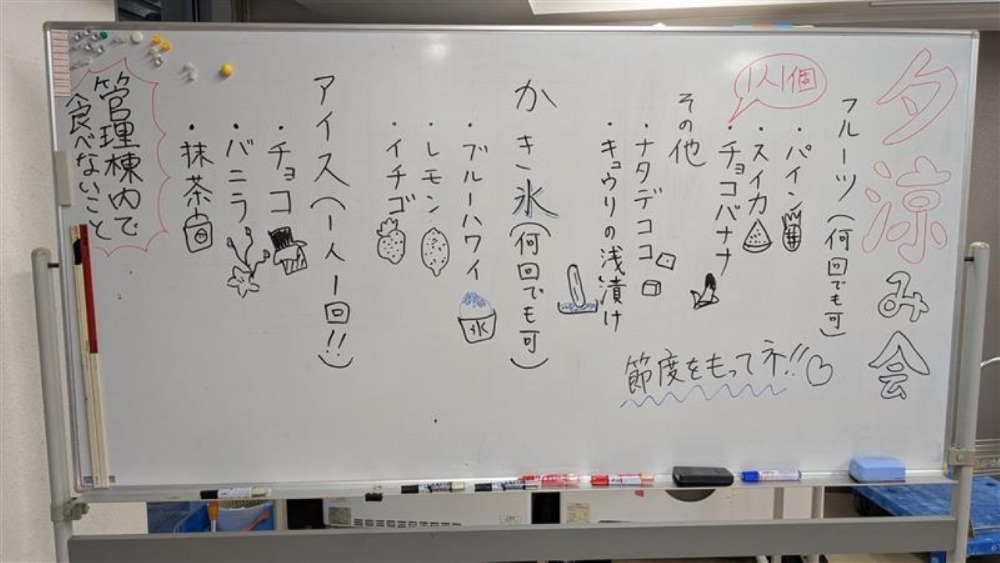 夕涼み会
フルーツ(何回でも可)
・パイン
・スイカ
・チョコバナナ
1人1個
その他
・ナタデココ
・キュウリの浅漬け
節度をもってネ!!♡
かき氷(何回でも可)
・ブルーハワイ
氷
・レモン
・イチゴ
アイス(一人一回!!)
・チョコ
・バニラ
・抹茶
管理棟内で
食べないこと